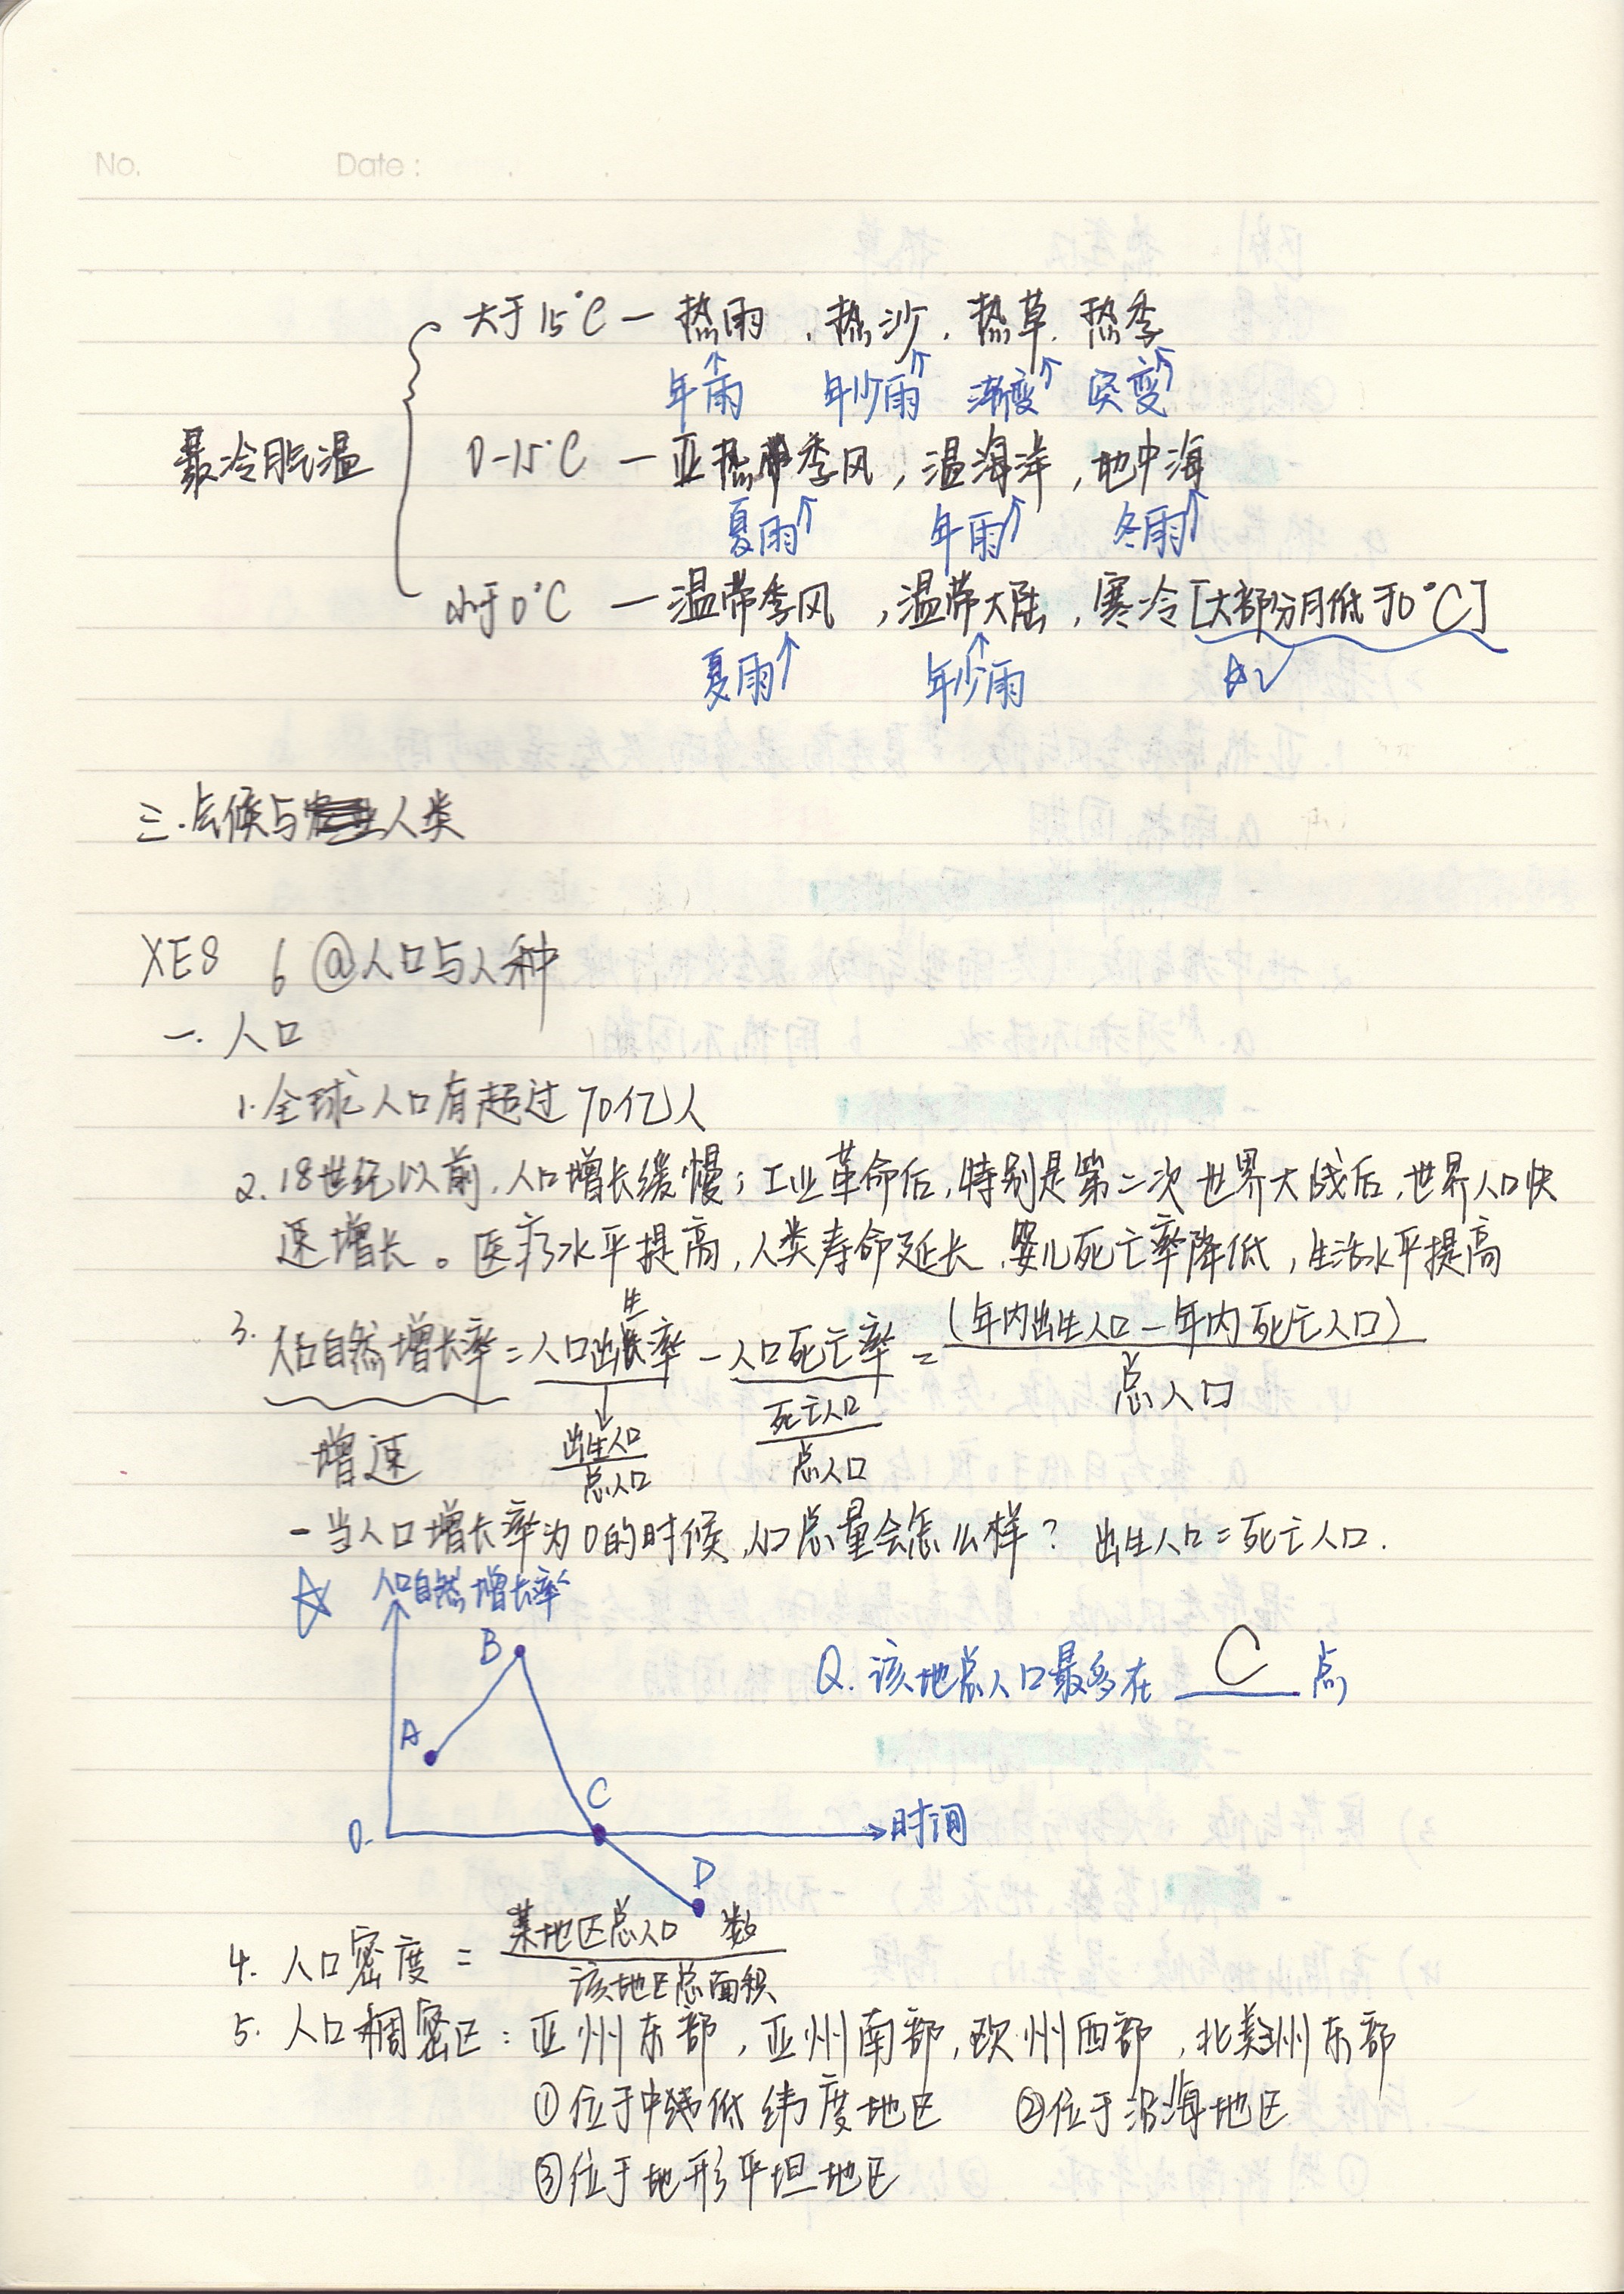 No. Date :
大于15℃ — 热雨 , 热沙 , 热草 , 热季
年雨 年少雨 渐变 突变
最冷月气温
0-15℃ — 亚热带季风 , 温海洋 , 地中海
夏雨 年雨 冬雨
小于0℃ — 温带季风 , 温带大陆 , 寒冷 [大部分月低于0℃]
夏雨 年少雨 ☆
三. 气候与人类
XE8 6 @人口与人种
一. 人口
1. 全球人口有超过70亿人
2. 18世纪以前, 人口增长缓慢; 工业革命后, 特别是第二次世界大战后, 世界人口快
速增长。医疗水平提高, 人类寿命延长, 婴儿死亡率降低, 生活水平提高
3. 人口自然增长率 = 人口出生率 - 人口死亡率 = (年内出生人口 - 年内死亡人口)
总人口
增速 出生人口 死亡人口
总人口 总人口
- 当人口增长率为0的时候, 人口总量会怎么样? 出生人口 = 死亡人口.
☆ 人口自然增长率
B
Q. 该地总人口最多在 C 点
A
C
0 时间
D
4. 人口密度 = 某地区总人口数
该地区总面积
5. 人口稠密区: 亚州东部, 亚州南部, 欧州西部, 北美州东部
①位于中低纬度地区 ②位于沿海地区
③位于地形平坦地区